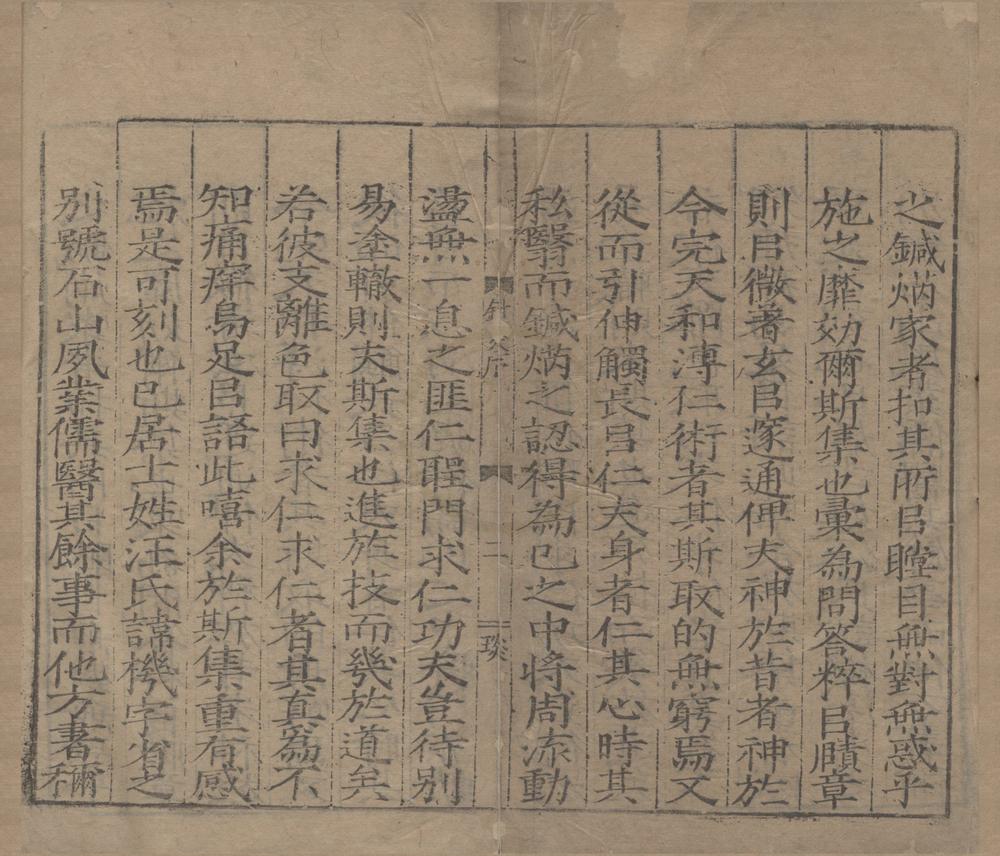 之鍼焫家者扣其所㠯瞠目無對無惑乎
施之靡効爾斯集也彙為問答粹㠯賾章
則㠯微者玄㠯邃通俾夫神於昔者神於
今完天和溥仁術者其斯取的無窮焉又
從而引伸觸長㠯仁夫身者仁其心時其
私翳而鍼焫之認得為己之中將周流動
針 序 二 琰
盪無一息之匪仁聖門求仁功夫豈待別
易塗轍則夫斯集也進於技而幾於道矣
若彼支離色取曰求仁求仁者其真為不
知痛痒烏足㠯語此嘻余於斯集重有感
焉是可刻也已居士姓汪氏諱機字省之
別號石山夙業儒醫其餘事而他方書稱